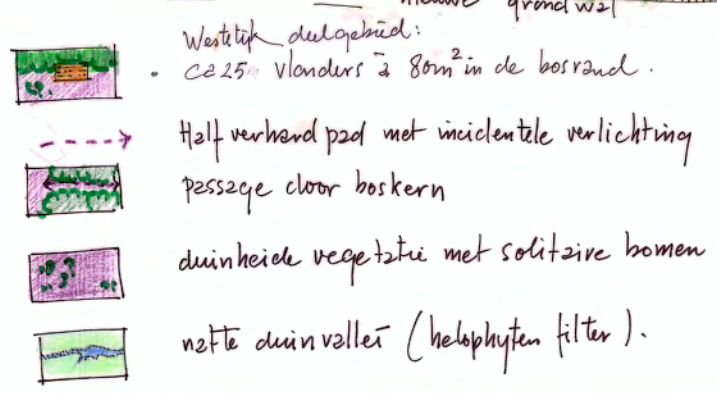 nieuwe grondwal
Westelijk deelgebied:
• ca 25 vlonders à 80m² in de bosrand.
Half verhard pad met incidentele verlichting
passage door boskern
duinheide vegetatie met solitaire bomen
natte duinvallei (helophyten filter).